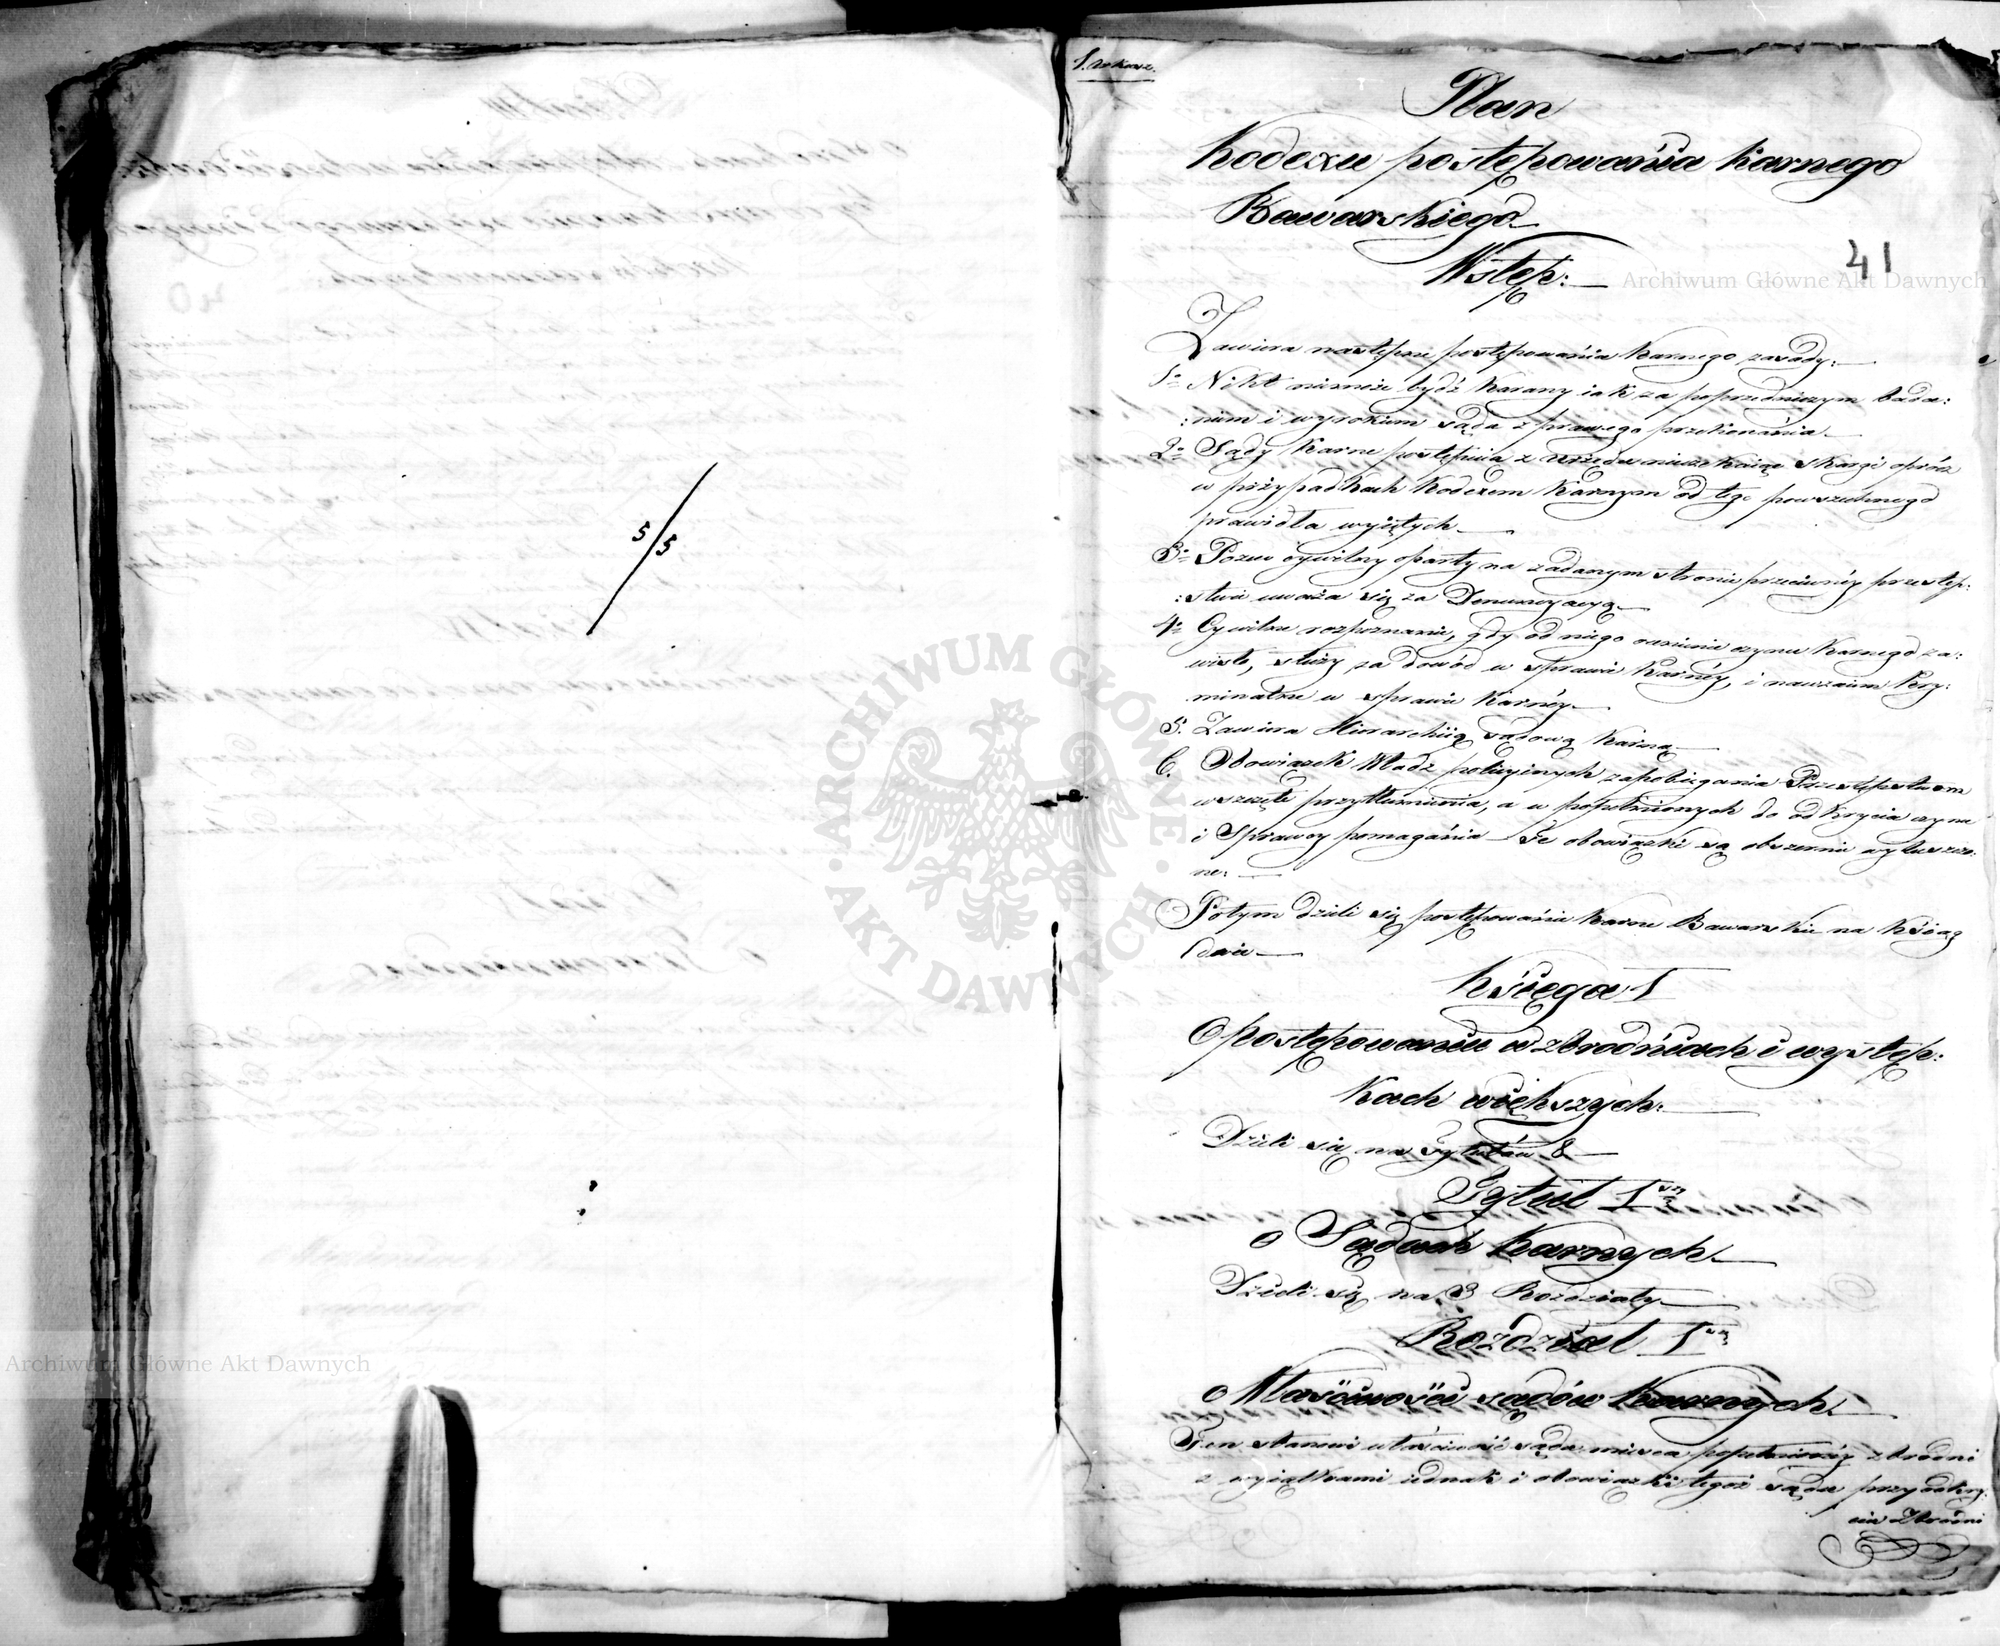 5/5
1. Arkusz.
Plan
Kodexu postępowania karnego
Bawarskiego
41
Wstęp:
Zawiera następne postępowania Karnego zasady:
1o Nikt niemoże bydź Karany iak za poprzedniczym bada:
:niem i wyrokiem sądu z prawego przekonania
2o Sądy Karne postępuią z urzędu nieczekaiąc skargi oprócz
w przypadkach Kodexem Karnym od tego powszechnego
prawidła wyiętych
3o Pozew cywilny oparty na zadanym stronie przeciwnéy przestęp:
:stwie uważa się za Denuncyacyą
4o Cywilne rozpoznanie, gdy od niego ocenienie czynu Karnego za:
wisło, służy za dowód w sprawie Karnéy, i nawzaiem Kry:
minalne w sprawie Karnéy
5. Zawiera Hierarchiią sądową Karną
6. Obowiązek Władz policyinych zapobiegania Przestępstwom
wszczęte przytłumienia, a w popełnionych do odkrycia czynu
i Sprawcy pomagania Te obowiązki są obszernie wyłuszczo:
ne:
Potym dzieli się postępowanie Karne Bawarskie na Xiąg
dwie
Księga I
O postępowaniu w zbrodniach i występ:
kach większych:
Dzieli się na Tytułów 8
Tytuł 1szy
o Sądach Karnych
Dzieli się na 3 Rozdziały
Rozdział 1szy
o Właściwości sądów Karnych
Ten stanowi właściwość sądu mieysca popełnionéy zbrodni
z wyiątkami iednak i obowiązki tegoż sądu przy odkry:
ciu Zbrodni
Archiwum Główne Akt Dawnych
Archiwum Główne Akt Dawnych
ARCHIWUM GŁÓWNE AKT DAWNYCH